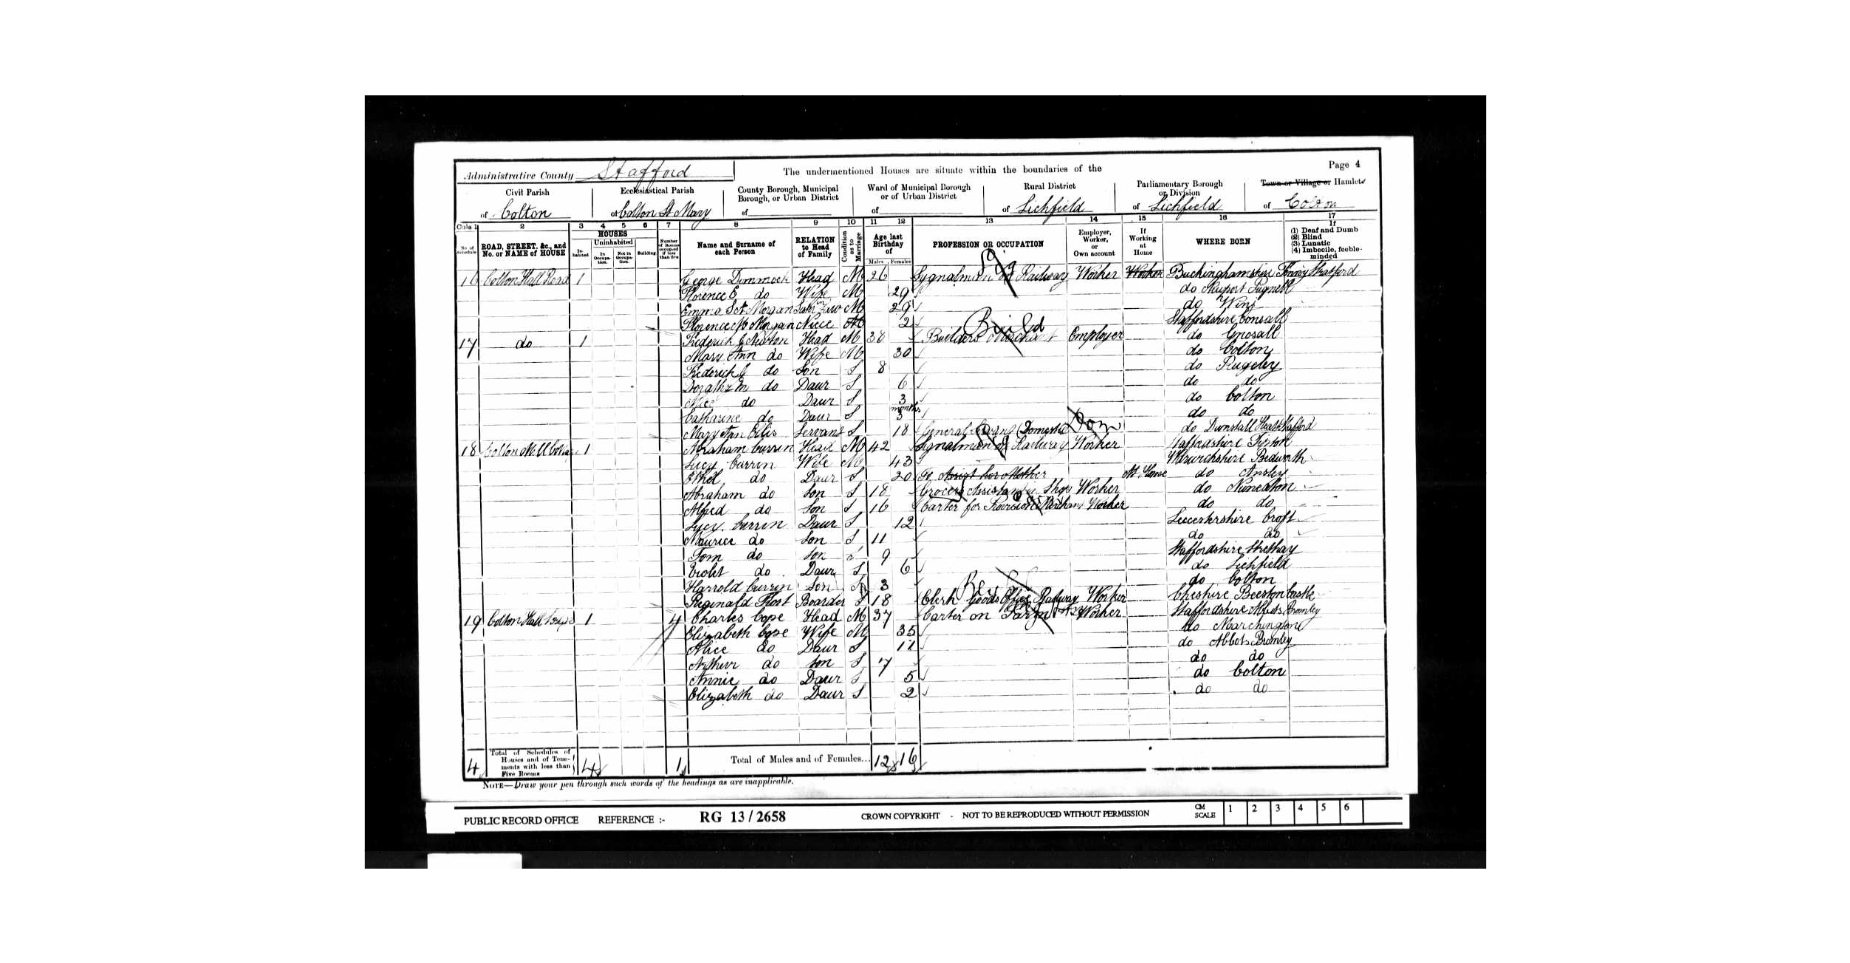 Administrative County Stafford
The undermentioned Houses are situate within the boundaries of the
Page 4
Civil Parish
of Colton
Ecclesiastical Parish
of Colton St Mary
County Borough, Municipal Borough, or Urban District
of
Ward of Municipal Borough or of Urban District
of
Rural District
of Lichfield
Parliamentary Borough or Division
of Lichfield
Town or Village or Hamlet
of Colton
Cols 1 2 3 4 5 6 7 8 9 10 11 12 13 14 15 16 17
No. of Schedule
ROAD, STREET, &c., and No. or NAME of HOUSE
HOUSES
Inhabited
Uninhabited
In Occupation
Not in Occupation
Building
Name and Surname of each Person
RELATION to Head of Family
Condition as to Marriage
Age last Birthday of
Males Females
PROFESSION OR OCCUPATION
Employer, Worker, or Own account
If Working at Home
WHERE BORN
If
(1) Deaf and Dumb
(2) Blind
(3) Lunatic
(4) Imbecile, feeble-minded
16 Colton Mill Road 1 George Dimmock Head M 26 Sygnalman on Railway Worker Worker Buckinghamshire Stratford
Florence E do Wife M 29 do Newport Pagnell
Emma Morgan M 29 do
Florence Morgan Niece 2 Staffordshire
17 do 1 Frederick Head M 38 Builders Employer do Gnosall
Build
Mary Ann do Wife M 30 do Colton
Frederick do Son S 8 do Rugeley
do Daur S 6 do do
do Daur S 3 do Colton
Catharine do Daur S 3 months do do
Mary Ann Ellis Servant S 18 General Domestic do Dunstall
Dom
18 Colton Mill 1 Abraham Currin Head M 42 Sygnalman on Railway Worker Staffordshire
Lucy Currin Wife M 43 Warwickshire Bedworth
Ethel do Daur S 20 Mother At Home do Ansley
Abraham do Son S 18 Grocers Shop Worker do Nuneaton
Alfred do Son S 16 Carter for Worker do do
Lucy Currin Daur S 12 Leicestershire Croft
Maurice do Son S 11 do do
Tom do Son S 9 Staffordshire Streethay
Violet do Daur S 6 do Lichfield
Harrold Currin Son S 3 do Colton
Reginald Boarder S 18 Clerk Goods Office Railway Worker Cheshire Beeston Castle
19 Colton Hall 1 4 Charles Cope Head M 37 Carter on Farm Worker Staffordshire Abbots Bromley
Elizabeth Cope Wife M 35 do Marchington
Alice do Daur S 11 do Abbots Bromley
Arthur do Son S 7 do do
Annie do Daur S 5 do Colton
Elizabeth do Daur S 2 do do
4 Total of Schedules of Houses and of Tenements with less than Five Rooms 4 1 Total of Males and of Females... 12 16
NOTE—Draw your pen through such words of the headings as are inapplicable.
PUBLIC RECORD OFFICE REFERENCE :- RG 13 / 2658 CROWN COPYRIGHT - NOT TO BE REPRODUCED WITHOUT PERMISSION CM SCALE 1 2 3 4 5 6